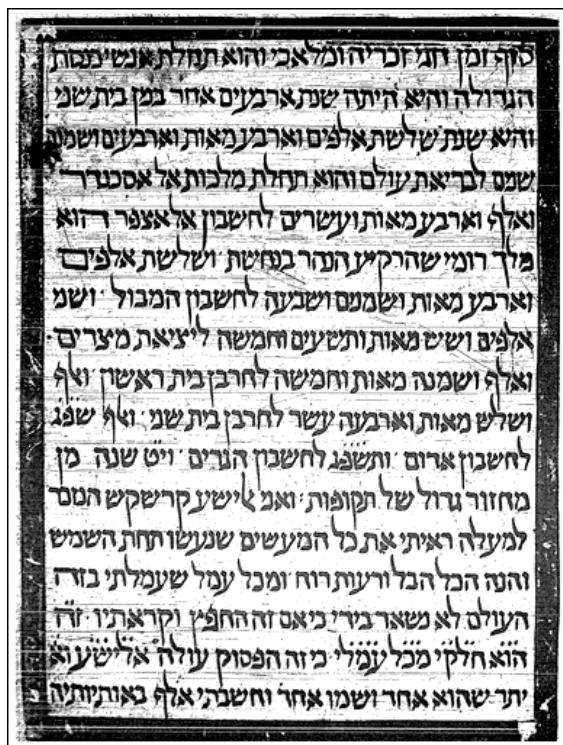 סוף זמן חגי זכריה ומלאכי והוא תחלת אנשי כנסת
הגדולה והיא היתה שנת ארבעים אחר בנין בית שני
והיא שנת שלשת אלפים וארבע מאות וארבעים ושמנה
שנים לבריאת עולם והוא תחלת מלכות אל אסכנדר
ואלף וארבע מאות ועשרים לחשבון אלאצפר הוא
מלך רומי שהרקיע הנהר בנחשת ושלשת אלפים
וארבע מאות ושמנים ושבעה לחשבון המבול ושנ
אלפים ושש מאות ותשעים וחמשה ליציאת מצרים
ואלף ושמנה מאות וחמשה לחרבן בית ראשון ואף
ושלש מאות וארבעה עשר לחרבן בית שני ואף שפג
לחשבון ארום ותשפג לחשבון הגרים ויט שנה מן
מחזור גדול של תקופות ואני אלישע קרשקש הנזכר
למעלה ראיתי את כל המעשים שנעשו תחת השמש
והנה הכל הבל ורעות רוח ומכל עמל שעמלתי בזה
העולם לא נשאר בידי כי אם זה החפץ וקראתיו זה
הוא חלקי מכל עמלי כי זה הפסוק עולה אלישע וא
יתר שהוא אחד ושמו אחד וחשבתי אלף באותיותיה